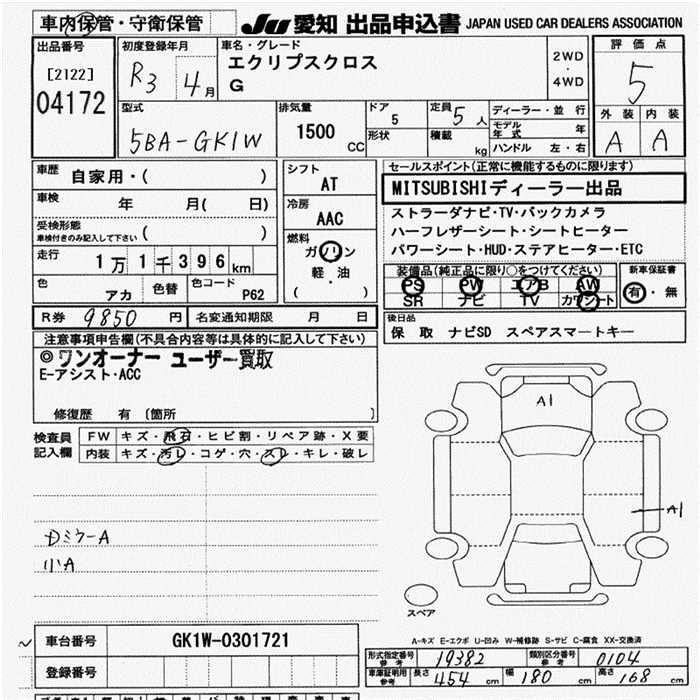 車内保管・守衛保管
JU 愛知 出品申込書 JAPAN USED CAR DEALERS ASSOCIATION
出品番号
[2122]
04172
初度登録年月
R3 4月
車名・グレード
エクリプスクロス
G
2WD
・
4WD
評価点
5
外装 内装
A A
型式
5BA-GK1W
排気量
1500 CC
ドア
5
形状
定員
5人
積載 kg
ディーラー・並行
モデル年式 年
ハンドル 左・右
車歴
自家用・( )
車検
年 月( 日)
受検形態
車検付きのみ記入して下さい ( )
走行
1万1千396km
色
アカ
色替
色コード
P62
シフト
AT
冷房
AAC
燃料
ガソリン
軽・油
( )
セールスポイント(正常に機能するものに限ります)
MITSUBISHIディーラー出品
ストラーダナビ・TV・バックカメラ
ハーフレザーシート・シートヒーター
パワーシート・HUD・ステアヒーター・ETC
装備品(純正品に限り○をつけてください)
PS PW エアB AW
SR ナビ TV カワシート
新車保証書
有・無
R券 9850円
名変通知期限 月 日
後日品
保 取 ナビSD スペアスマートキー
注意事項申告欄(不具合内容等は具体的に記入して下さい)
◎ワンオーナー ユーザー買取
E-アシスト・ACC
修復歴 有 〔箇所 〕
検査員
記入欄
FW キズ・飛石・ヒビ割・リペア跡・X要
内装 キズ・汚レ・コゲ・穴・スレ・キレ・破レ
Dミラー A
小A
A1
A1
スペア
A-キズ E-エクボ U-凹み W-補修跡 S-サビ C-腐食 XX-交換済
~
車台番号 GK1W-0301721
登録番号
形式指定番号
参考
19382
類別区分番号
参考
0104
車庫証明用
参考
長さ 454 cm
幅 180 cm
高さ 168 cm